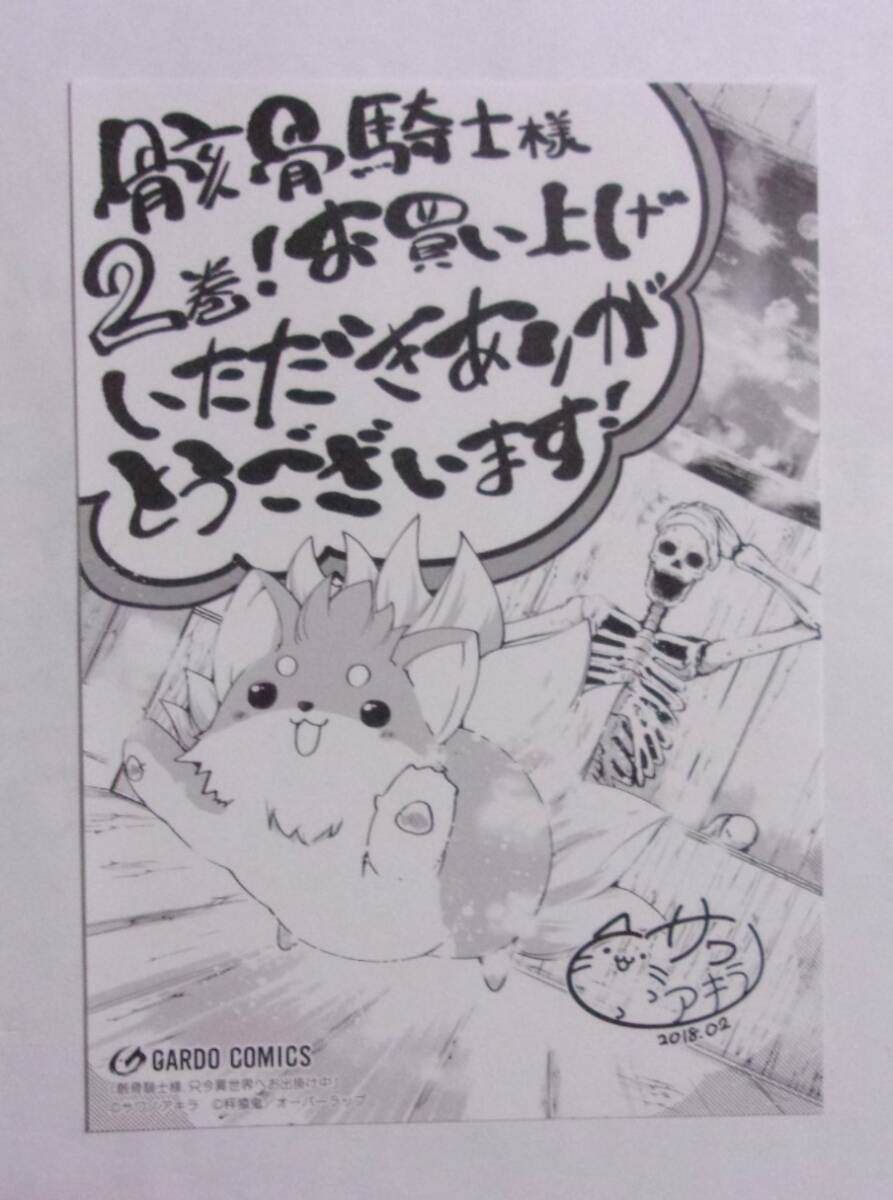 骸骨騎士様
2巻!お買い上げ
いただきありが
とうございます!
サワ
アキラ
2018.02
GARDO COMICS
「骸骨騎士様、只今異世界へお出掛け中」
©サワノアキラ ©秤猿鬼/オーバーラップ